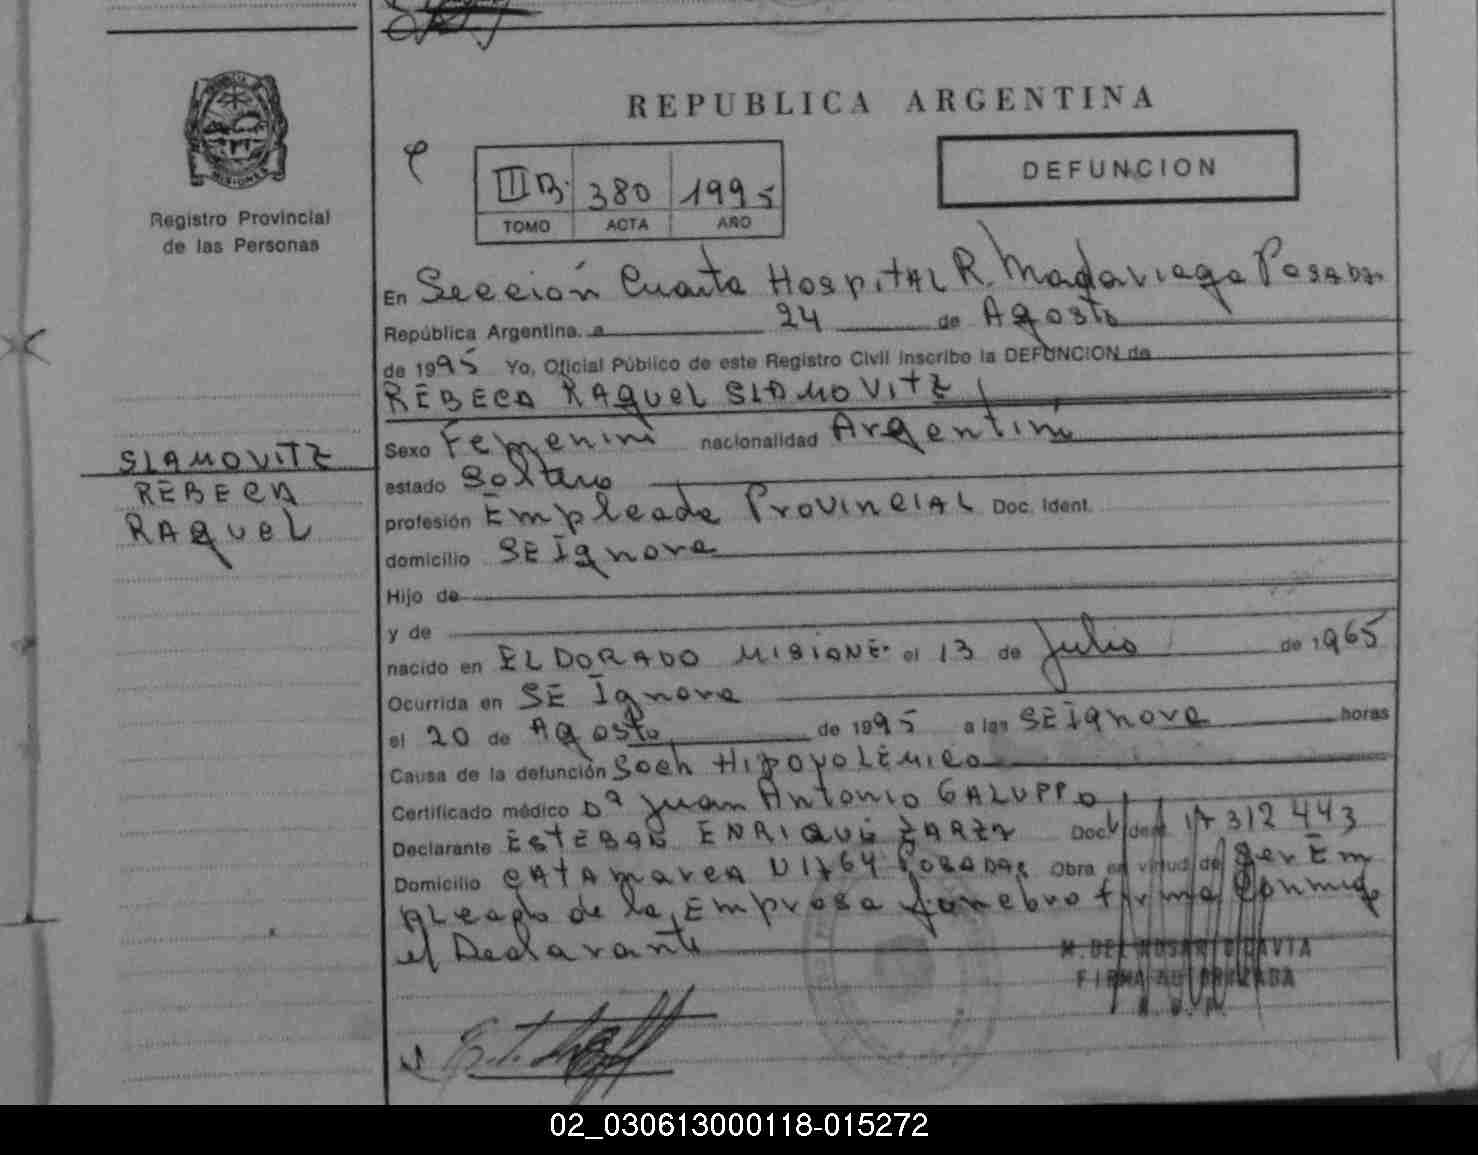 REPUBLICA ARGENTINA
DEFUNCION
II B. 380 1995
TOMO ACTA AÑO
Registro Provincial
de las Personas
MISIONES
En Sección Cuarta Hospital R. Madariaga Posadas
República Argentina. a 24 de Agosto
de 1995 Yo, Oficial Público de este Registro Civil inscribo la DEFUNCION de
REBECA RAQUEL SLAMOVITZ
Sexo Femenino nacionalidad Argentina
SLAMOVITZ
REBECA
RAQUEL
estado Soltera
profesión Empleada Provincial Doc. Ident.
domicilio SE Ignora
Hijo de
y de
nacido en ELDORADO MISIONES el 13 de Julio de 1965
Ocurrida en SE Ignora
el 20 de Agosto de 1995 a las SE Ignora horas
Causa de la defunción Soch Hipovolémico
Certificado médico Dº Juan Antonio GALUPPO
Declarante ESTEBAN ENRIQUE ZARZA Doc. Ident. 17 312 443
Domicilio CATAMARCA Nº 1764 POSADAS Obra en virtud de ser Em
pleado de la Empresa fúnebre firma conmigo
el Declarante
M. DEL ROSARIO
FIRMA AUTORIZADA
02_030613000118-015272